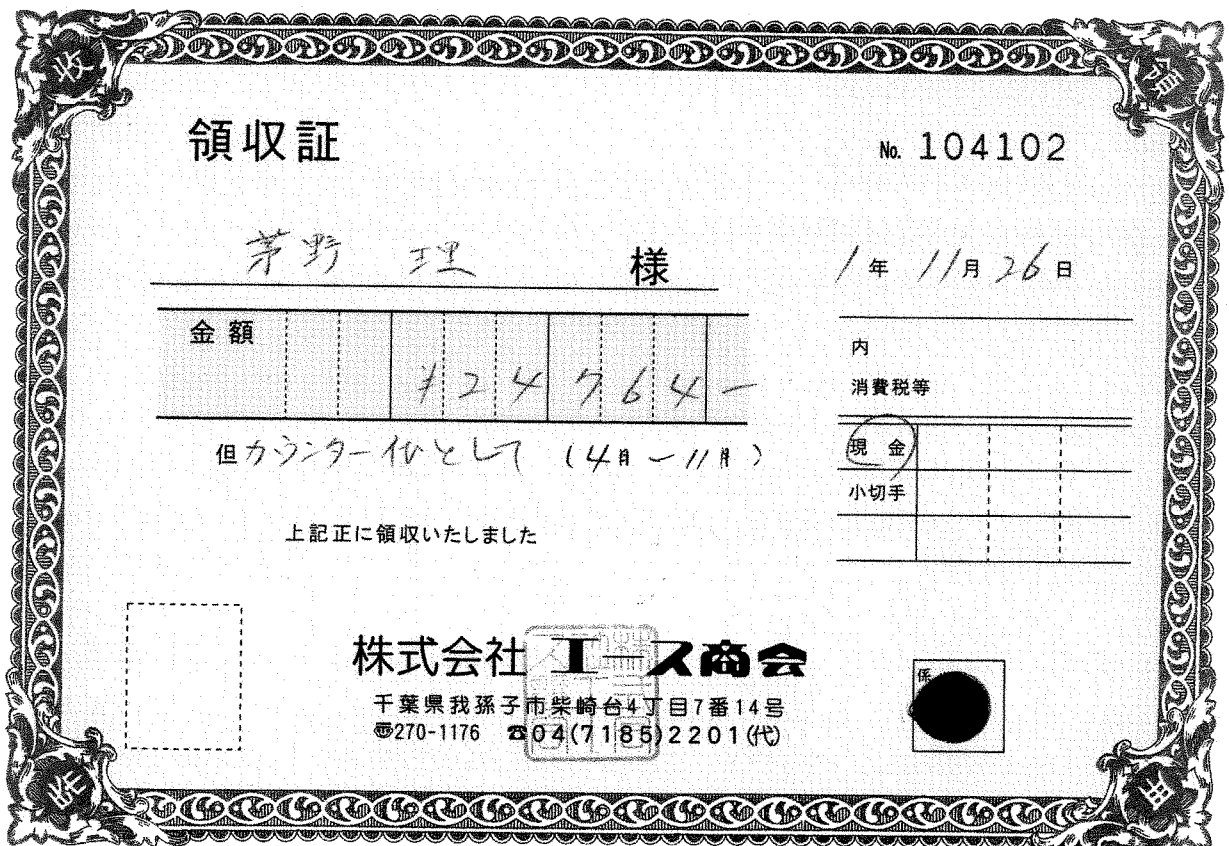 領収証
No. 104102
茅野 理 様
1年 11月 26日
金額
124764-
内
消費税等
但カウンター代として (4月~11月)
現金
小切手
上記正に領収いたしました
株式会社 エース商会
千葉県我孫子市柴崎台4丁目7番14号
〠270-1176 ☎04(7185)2201(代)
係